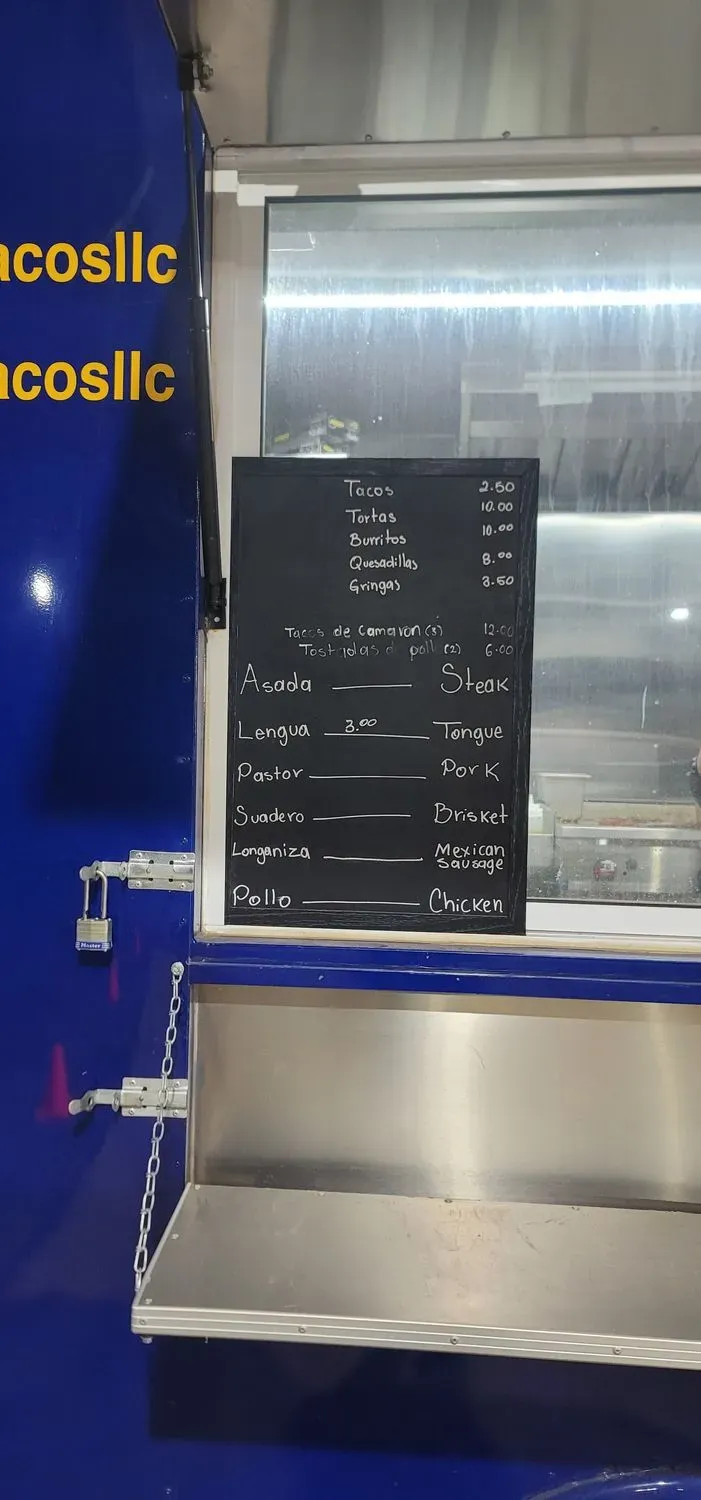 acosllc
acosllc
Tacos 2.50
Tortas 10.00
Burritos 10.00
Quesadillas 8.00
Gringas 3.50
Tacos de camaron (3) 12.00
Tostadas d poll (2) 6.00
Asada Steak
Lengua 3.00 Tongue
Pastor Pork
Suadero Brisket
Longaniza Mexican
Sausage
Pollo Chicken
Master